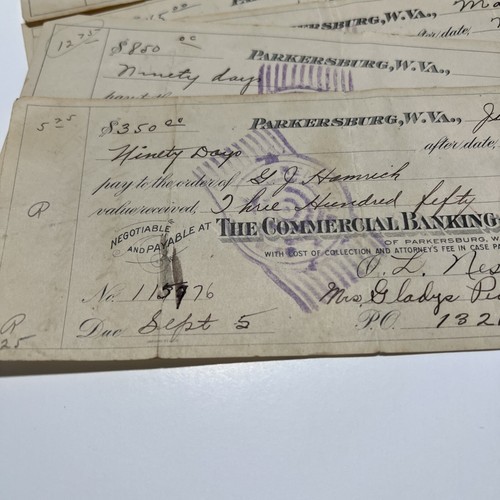 15 00
PARKERSBURG, W.VA.,
after date,
12 75
$850 00
PARKERSBURG, W.VA.,
Ninety days
5 25
$350 00
PARKERSBURG, W.VA.,
Ninety Days
after date,
pay to the order of G J Hamrich
value received, Three Hundred fifty
NEGOTIABLE AND PAYABLE AT THE COMMERCIAL BANKING
OF PARKERSBURG, W.
WITH COST OF COLLECTION AND ATTORNEY'S FEE IN CASE PA
O. L.
No. 115976
Mrs Gladys
Due Sept 5
P.O. 132
R
25